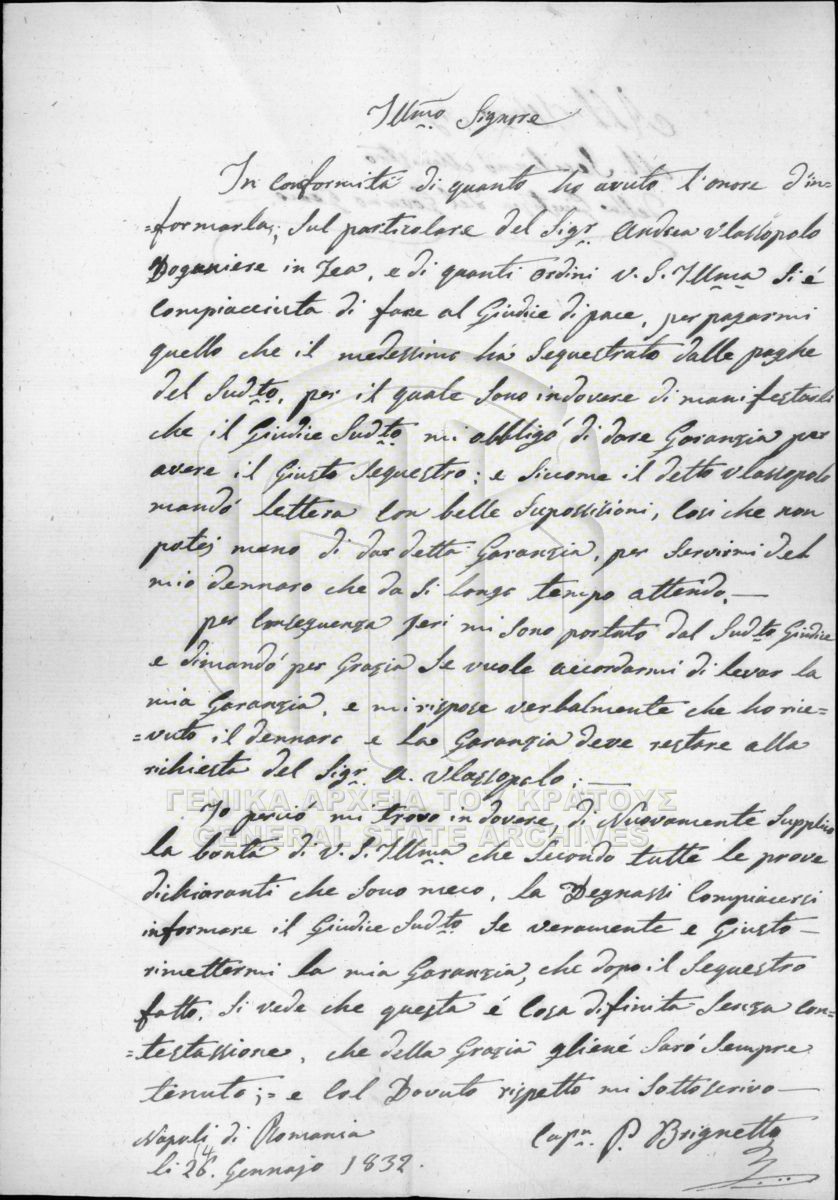 Illmo Signore
In conformità di quanto ho avuto l'onore d'in=
=formarla; sul particolare del Sigr. Andrea Vlassopolo
Doganiere in Zea, e di quanti ordini V. S. Illma si é
compiacciuta di fare al Giudice di pace, per pagarmi
quello che il medessimo há sequestrato dalle paghe
del Sudto, per il quale sono indovere di manifestarli
che il Giudice Sudto mi obbligó di dare Garanzia per
avere il Giusto sequestro; e siccome il detto Vlassopolo
mandó lettera con belle suposisioni, cosi che non
potej meno di dar detta Garanzia, per servirmi del
mio dennaro che da si longo tempo attendo. —
per conseguenza jeri mi sono portato dal Sudto Giudice
e dimandó per Grazia se vuole accordarmi di levar la
mia Garanzia, e mi rispose verbalmente che ho rice=
=vuto il dennaro e la Garanzia deve restare alla
richiesta del Sigr. A. Vlassopolo; —
ΓΕΝΙΚΑ ΑΡΧΕΙΑ ΤΟΥ ΚΡΑΤΟΥΣ
Io perció mi trovo indovere, di Nuovamente supplico
GENERAL STATE ARCHIVES
la bontá di V. S. Illma che secondo tutte le prove
dichiaranti che sono meco, la Degnassi compiacersi
informare il Giudice Sudto se veramente e Giusto —
rimettermi la mia Garanzia, che dopo il sequestro
fatto, si vede che questa é cosa difinita senza con=
=testassione, che della Grazia gliené saró sempre
tenuto; = e col Dovuto rispetto mi sottoscrivo —
Napoli di Romania
Capn. P. Brignetto
li 26/14 Gennajo 1832.